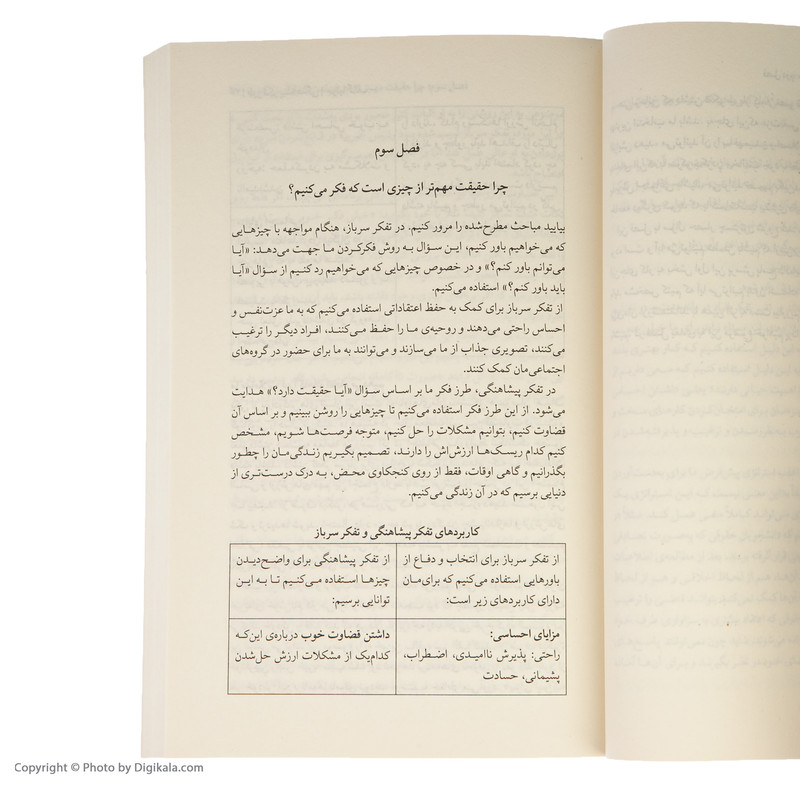 فصل سوم
چرا حقیقت مهم‌تر از چیزی است که فکر می‌کنیم؟
بیایید مباحث مطرح‌شده را مرور کنیم. در تفکر سرباز، هنگام مواجهه با چیزهایی
که می‌خواهیم باور کنیم، این سؤال به روش فکرکردن ما جهت می‌دهد: «آیا
می‌توانم باور کنم؟» و در خصوص چیزهایی که می‌خواهیم رد کنیم از سؤال «آیا
باید باور کنم؟» استفاده می‌کنیم.
از تفکر سرباز برای کمک به حفظ اعتقاداتی استفاده می‌کنیم که به ما عزت‌نفس و
احساس راحتی می‌دهند و روحیه‌ی ما را حفظ می‌کنند، افراد دیگر را ترغیب
می‌کنند، تصویری جذاب از ما می‌سازند و می‌توانند به ما برای حضور در گروه‌های
اجتماعی‌مان کمک کنند.
در تفکر پیشاهنگی، طرز فکر ما بر اساس سؤال «آیا حقیقت دارد؟» هدایت
می‌شود. از این طرز فکر استفاده می‌کنیم تا چیزهایی را روشن ببینیم و بر اساس آن
قضاوت کنیم، بتوانیم مشکلات را حل کنیم، متوجه فرصت‌ها شویم، مشخص
کنیم کدام ریسک‌ها ارزش‌اش را دارند، تصمیم بگیریم زندگی‌مان را چطور
بگذرانیم و گاهی اوقات، فقط از روی کنجکاوی محض، به درک درست‌تری از
دنیایی برسیم که در آن زندگی می‌کنیم.
کاربردهای تفکر پیشاهنگی و تفکر سرباز
از تفکر سرباز برای انتخاب و دفاع از
باورهایی استفاده می‌کنیم که برای‌مان
دارای کاربردهای زیر است:
از تفکر پیشاهنگی برای واضح‌دیدن
چیزها استفاده می‌کنیم تا به این
توانایی برسیم:
مزایای احساسی:
راحتی: پذیرش ناامیدی، اضطراب،
پشیمانی، حسادت
داشتن قضاوت خوب درباره‌ی این‌که
کدام‌یک از مشکلات ارزش حل‌شدن
Copyright © Photo by Digikala.com